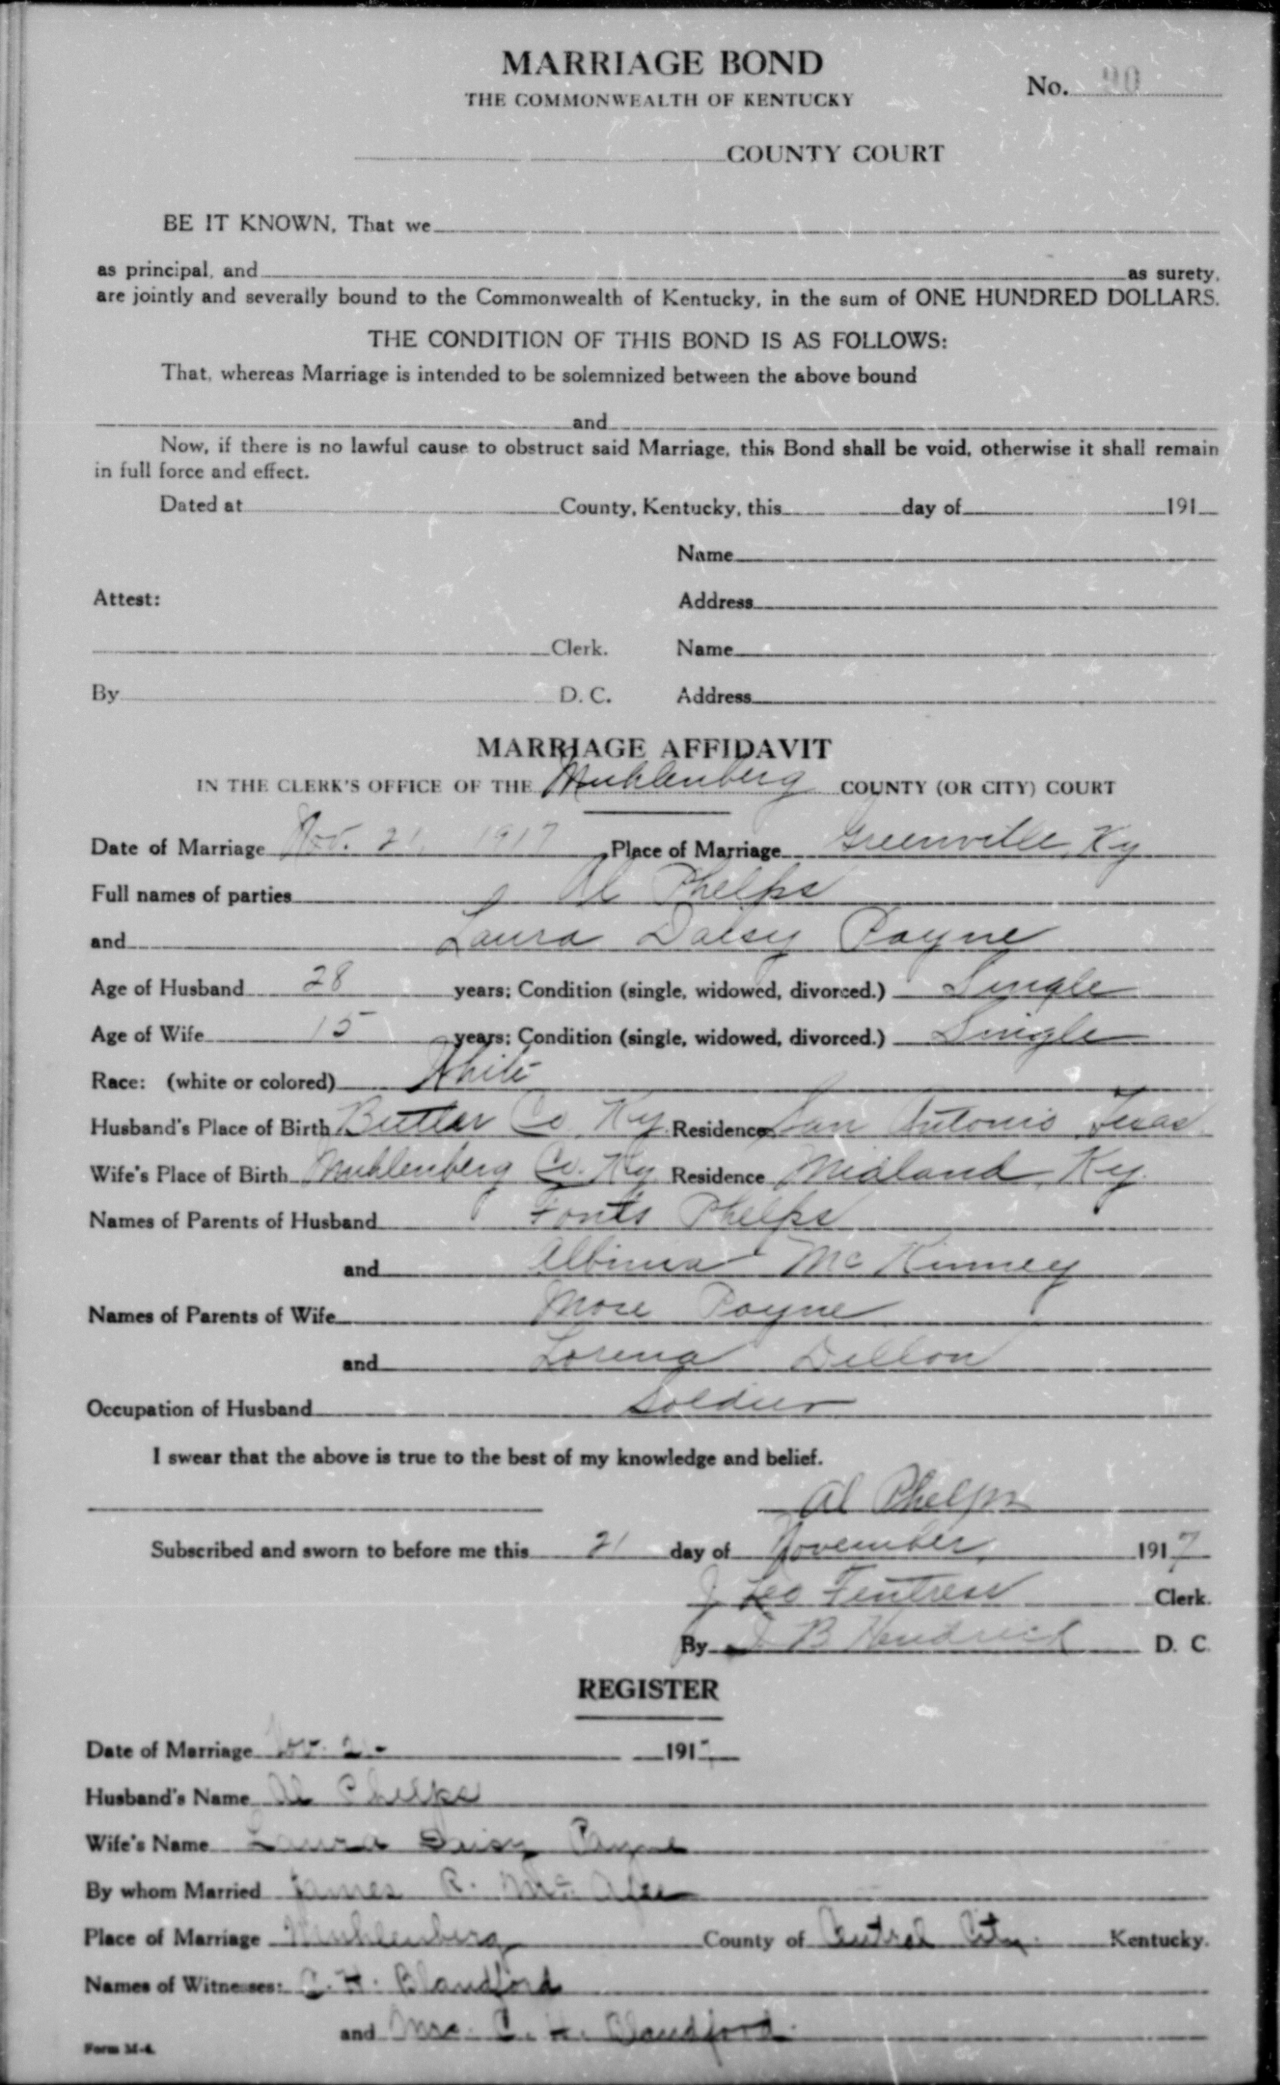 MARRIAGE BOND
THE COMMONWEALTH OF KENTUCKY
No. 90
COUNTY COURT
BE IT KNOWN, That we
as principal, and as surety,
are jointly and severally bound to the Commonwealth of Kentucky, in the sum of ONE HUNDRED DOLLARS.
THE CONDITION OF THIS BOND IS AS FOLLOWS:
That, whereas Marriage is intended to be solemnized between the above bound
and
Now, if there is no lawful cause to obstruct said Marriage, this Bond shall be void, otherwise it shall remain
in full force and effect.
Dated at County, Kentucky, this day of 191
Name
Attest: Address
Clerk. Name
By D. C. Address
MARRIAGE AFFIDAVIT
IN THE CLERK'S OFFICE OF THE Muhlenberg COUNTY (OR CITY) COURT
Date of Marriage Nov. 21, 1917 Place of Marriage Greenville, Ky
Full names of parties Al Phelps
and Laura Daisy Payne
Age of Husband 28 years; Condition (single, widowed, divorced.) Single
Age of Wife 15 years; Condition (single, widowed, divorced.) Single
Race: (white or colored) White
Husband's Place of Birth Butler Co, Ky. Residence San Antonio Texas
Wife's Place of Birth Muhlenberg Co. Ky Residence Midland, Ky.
Names of Parents of Husband Phelps
and Albinia McKinney
Names of Parents of Wife Mose Payne
and Lorena Dillon
Occupation of Husband Soldier
I swear that the above is true to the best of my knowledge and belief.
Al Phelps
Subscribed and sworn to before me this 21 day of November, 1917
J Leo Fentress Clerk.
By J B Hendrick D. C.
REGISTER
Date of Marriage Nov. 21- 1917
Husband's Name Al Phelps
Wife's Name Laura Daisy Payne
By whom Married James R. McAfee
Place of Marriage Muhlenberg County of Central City. Kentucky.
Names of Witnesses: C. H. Blandford
and Mrs. C. H. Blandford.
Form M-4.